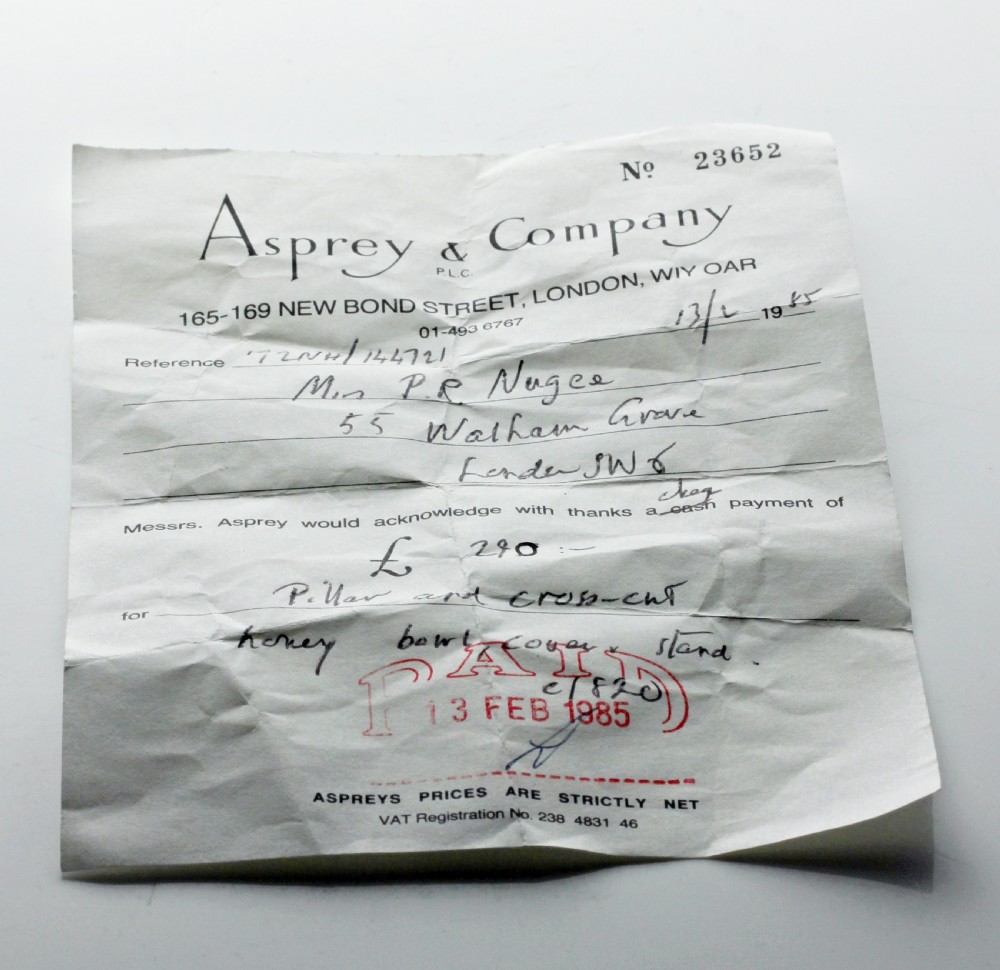 Nº 23652
Asprey & Company
P.L.C.
165-169 NEW BOND STREET, LONDON, W1Y OAR
01-493 6767
13/2 1985
Reference 144721
P.R Nugee
55 Walham Grove
London SW6
cheq
Messrs. Asprey would acknowledge with thanks a cash payment of
£ 290:-
for Pillar and cross-cut
honey bowl, cover & stand.
PAID
c1820
13 FEB 1985
ASPREYS PRICES ARE STRICTLY NET
VAT Registration No. 238 4831 46